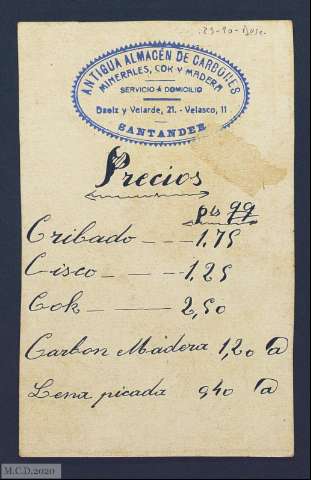 23-90-Dbre.
ANTIGUA ALMACÉN DE CARBONES
MINERALES, COK Y MADERA
SERVICIO Á DOMICILIO
Daoiz y Velarde, 21. - Velasco, 11
SANTANDER
Precios
pts qq
Cribado --- 1,75
Cisco --- 1,25
Cok --- 2,50
Carbon Madera 1,20 @
Lena picada 0,40 @
M.C.D.2020